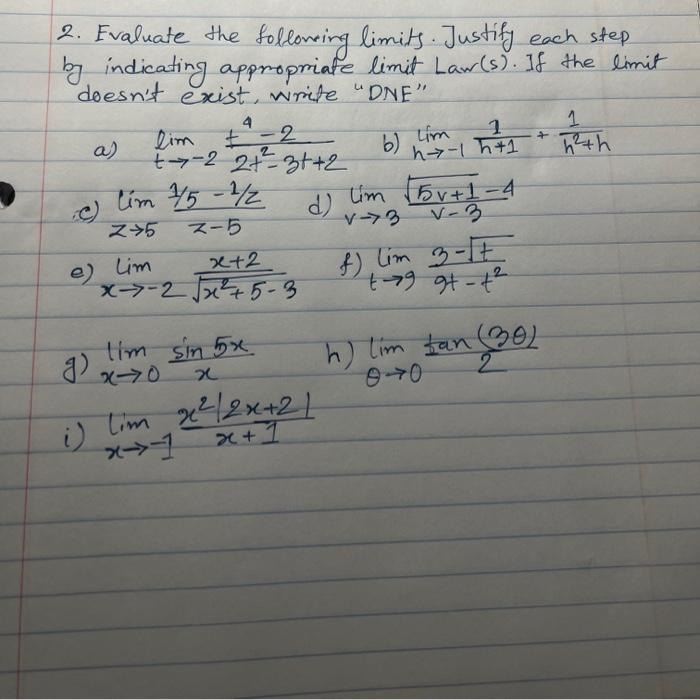 2. Evaluate the following limits. Justify each step
by indicating appropriate limit Law(s). If the limit
doesn't exist, write "DNE"
a) lim t→-2 (t^4 - 2)/(2t^2 - 3t + 2) b) lim h→-1 1/(h+1) + 1/(h^2+h)
c) lim z→5 (1/5 - 1/z)/(z-5) d) lim v→3 (√(5v+1) - 4)/(v-3)
e) lim x→-2 (x+2)/(√(x^2+5) - 3) f) lim t→9 (3-√t)/(9t-t^2)
g) lim x→0 (sin 5x)/x h) lim θ→0 (tan(3θ))/2
i) lim x→-1 (x^2|2x+2|)/(x+1)